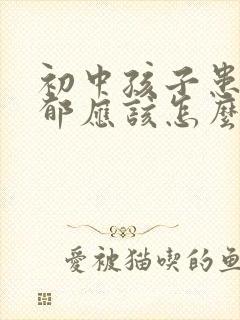 初中孩子患
郁应该怎麼
愛被猫喫的鱼